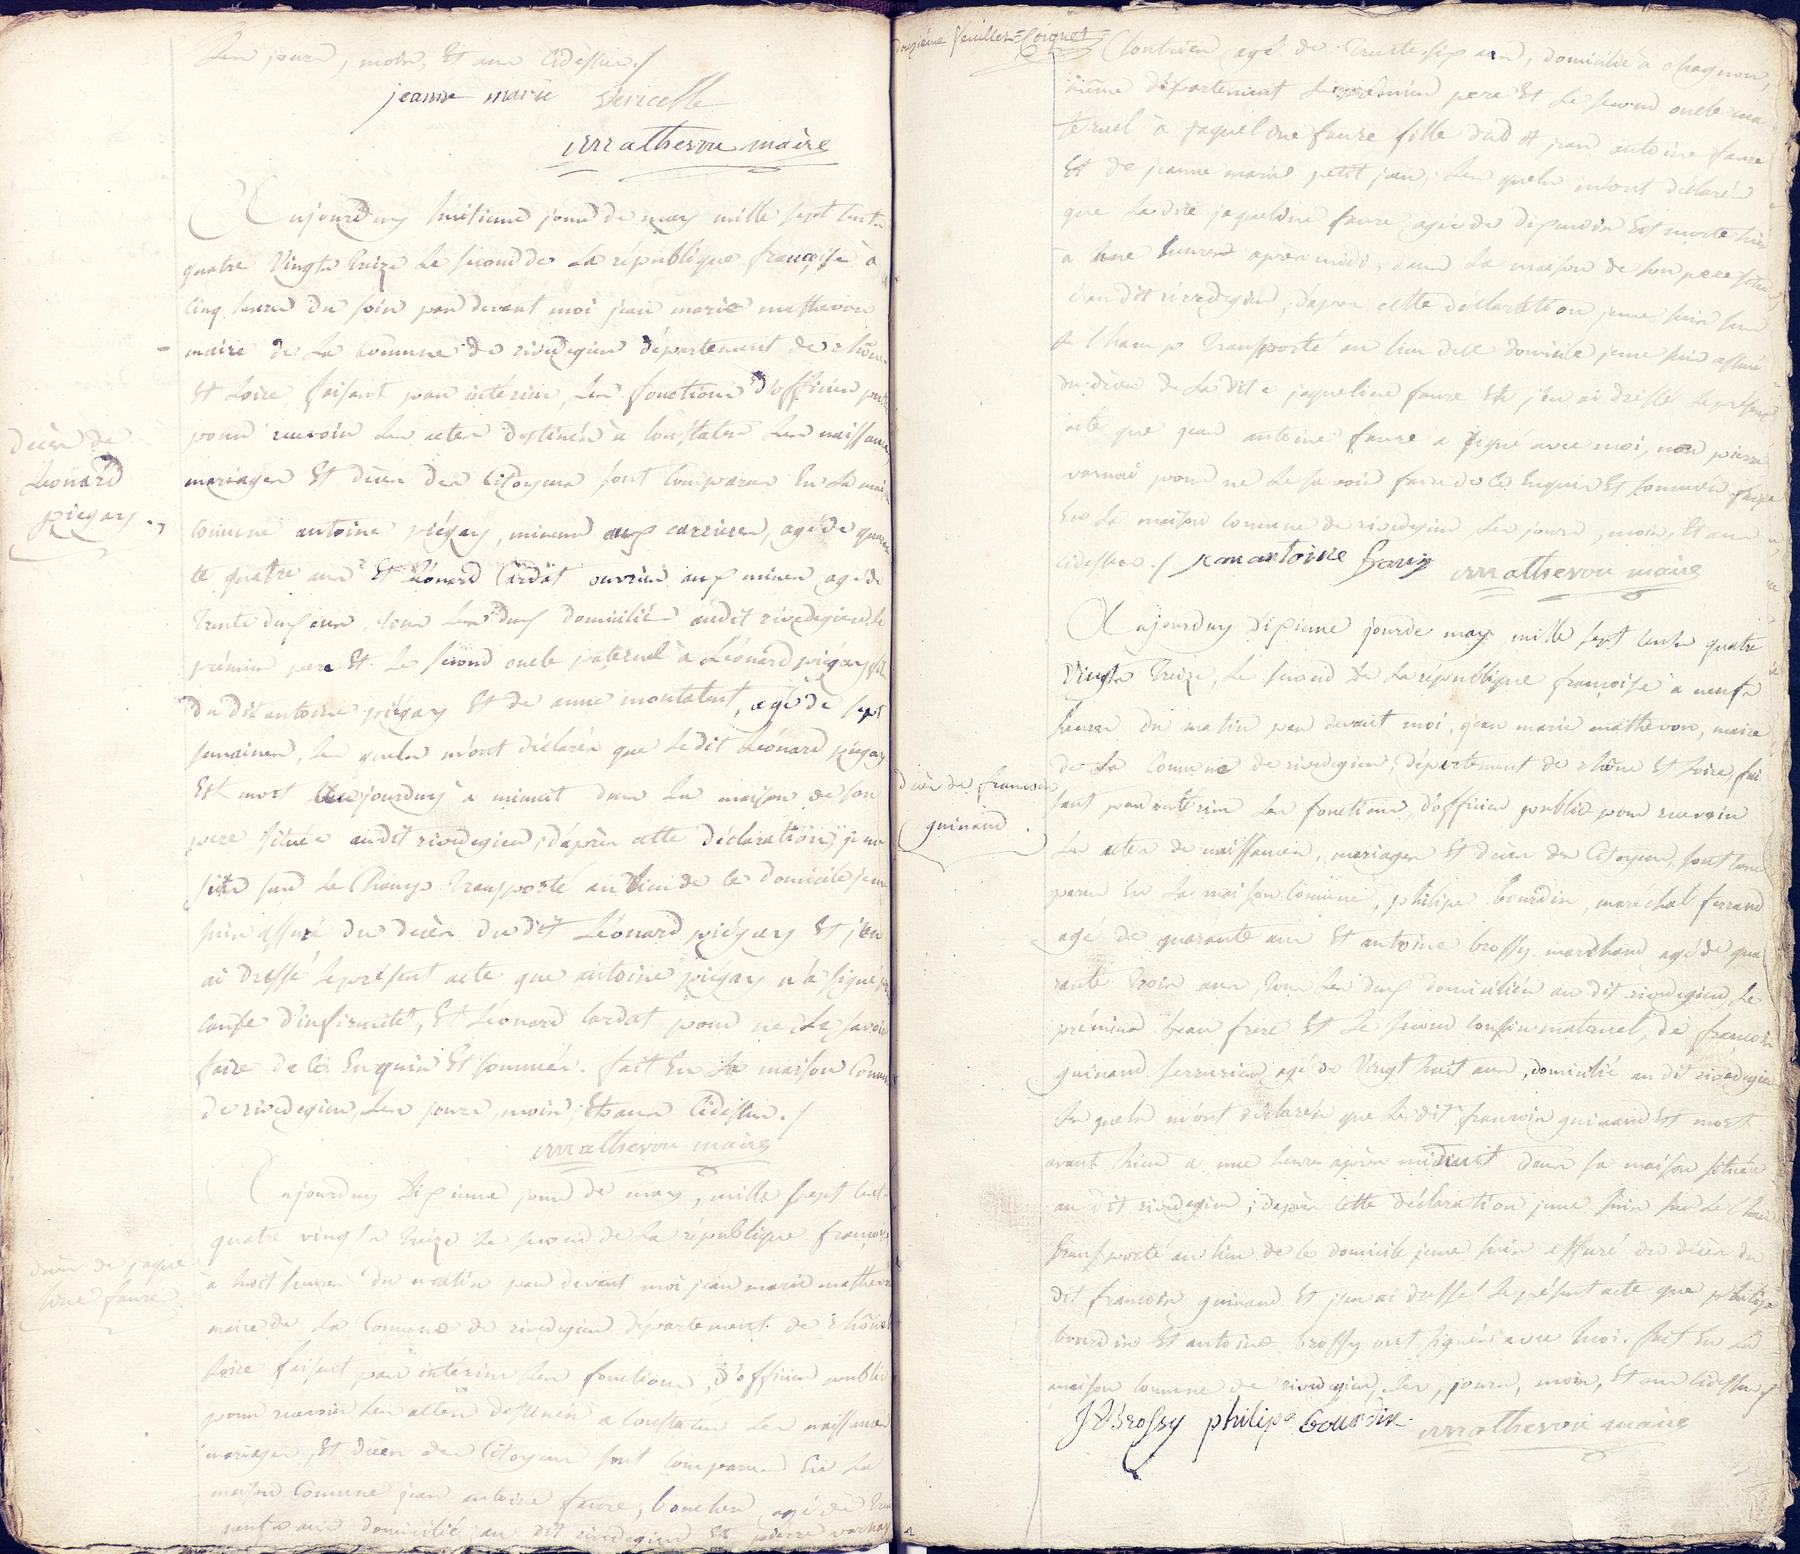 Les jours, mois, Et an Cidessus./
jeanne marie Vericelle
jm mathevon maire
Aujourduy huitieme jour de may mille sept cents
quatre Vingts treize Le second de La république françoise à
Cinq heures du soir par devant moi jean marie mathevon
maire de La Comune de rivedegier département de rhône
Et Loire, faisant par intérim, Les fonctions d'officier public
pour recevoir Les actes destinés à Constater Les naissances
mariages Et décès des Citoyens sont Comparus En La maison
décès de
Léonard
piégay
Comune antoine piégay, mineur aux carrieres, agé de quaran
te quatre ans Et Léonard Cardat ouvrier aux mines agé de
trente deux ans, tous Les deux domiciliés audit rivedegier, Le
prémier pere Et Le second oncle paternel à Léonard piégay fils
du dit antoine piégay Et de anne montabert, agé de sept
semaines, Les quels m'ont déclarés que Le dit Léonard piégay
Est mort Aujourduy à minuit dans La maison de son
pere située audit rivedegier, d'après cette déclaration, je me
suis sur Le Champ transporté au Lieu de Ce domicile je me
suis assuré du décès du dit Léonard piégay Et j'en
ai dressé Leprésent acte que antoine piégay n'a signé pour
Cause d'infirmité, Et Léonard Cardat pour ne Le savoir
faire de Ce Enquis Et sommés. fait En La maison Comune
de rivedegier, Les jours, mois, Et an Cidessus./
jm mathevon maire
Aujourduy Dixieme jour de may, mille sept cents
quatre vingts treize Le second de La république françoise
décès de jaque
line faure
à huit heures du matin par devant moi jean marie mathevon
maire de La Comune de rivedegier département de rhône Et
Loire faisant par intérim Les fonctions, d'officier public
pour recevoir Les actes destinés à Constater Les naissances
mariages, Et décès des Citoyens sont Comparus En La
maison Comune jean antoine faure, boucher agé de tren
te neuf ans domicilié au dit rivedegier Et pierre varnay
douzième feuillet Coignet
Cloutier agé de trente six ans, domicilié à Chagnon,
même département Le prémier pere Et Le second oncle ma
ternel à jaqueline faure fille dudit jean antoine faure
Et de jeanne marie petit jean, Les quels m'ont déclarés
que Ladite jaqueline faure agée de dix mois Est morte hier
à une heures après midi, dans La maison de son pere située
audit rivedegier, d'après cette déclaration je me suis sur
Le Champ transporté au Lieu de Ce domicile je me suis assuré
du décès de Ladite jaqueline faure Et j'en ai dressé Leprésent
acte que jean antoine faure a signé avec moi, non pierre
varnay pour ne Le savoir faire de Ce Enquis Et sommés. fait
En La maison Comune de rivedegier Les jours, mois, Et an
Cidessus./ jean antoine faure jm mathevon maire
Aujourduy Dixieme jour de may mille sept cents quatre
Vingts treize, Le second de La république françoise à neufs
heures du matin par devant moi, jean marie mathevon, maire
de La Comune de rivedegier, département de rhône Et Loire, fai
décès de francois
guinand
sant par intérim Les fonctions, d'officier public pour recevoir
Les actes de naissances, mariages Et décès des Citoyens, sont Com
parus En La maison Comune, philipe bourdin, marechal ferrand
agé de quarante ans Et antoine brossy marchand agé de qua
rante trois ans, tous Les deux domiciliés au dit rivedegier, Le
prémier beau frere Et Le second Cousin maternel, de francois
guinand serrurier agé de Vingt huit ans, domicilié au dit rivedegier
Les quels m'ont déclarés que Le dit francois guinand Est mort
avant hier à une heures après minuit dans sa maison située
au dit rivedegier, d'après Cette déclaration je me suis sur Le Champ
transporté au Lieu de Ce domicile je me suis assuré du décès du
dit francois guinand Et j'en ai dressé Leprésent acte que philipe
bourdin Et antoine brossy ont signés avec moi. fait En La
maison Comune de rivedegier Les, jours, mois, Et an Cidessus./
J A Brossy philipe Bourdin jm mathevon maire